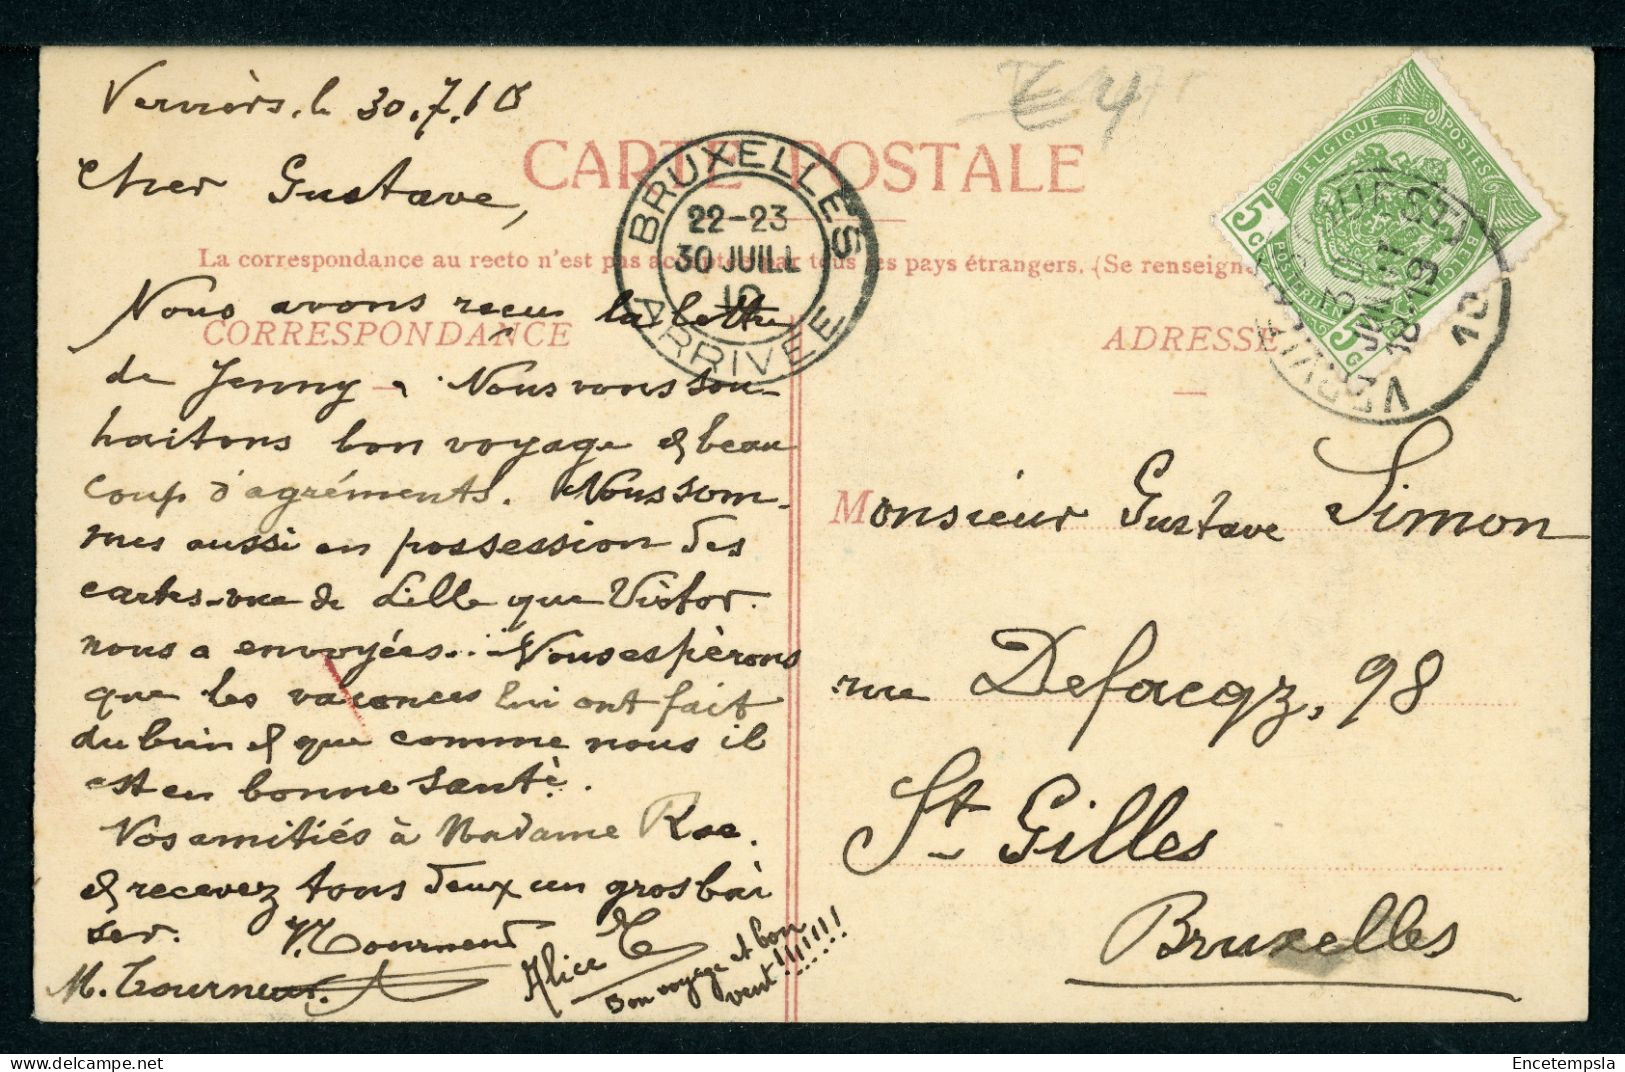 Verviers, le 30.7.10
Cher Gustave,
CARTE POSTALE
BRUXELLES
22-23
30 JUILL
10
ARRIVEE
La correspondance au recto n'est pas acceptée par tous les pays étrangers. (Se renseigne
CORRESPONDANCE
ADRESSE
BELGIQUE POSTES
5 C
5 C
POSTERIJEN BELGIE
VERVIERS (OUEST)
30
JUIL
18-19
10
Nous avons reçu la lettre
de Jenny. Nous vous sou-
haitons bon voyage et beau
coup d'agréments. Nous som-
mes aussi en possession des
cartes-vue de Lille que Victor
nous a envoyées. Nous espèrons
que les vacances lui ont fait
du bien et que comme nous il
est en bonne santé.
Vos amitiés à Madame
et recevez tous deux un gros bai
ser.
M.
Alice
Bon voyage et bon
vent !!!!!!!
Monsieur Gustave Simon
rue Defacqz, 98
St Gilles
Bruxelles
Encetempsla